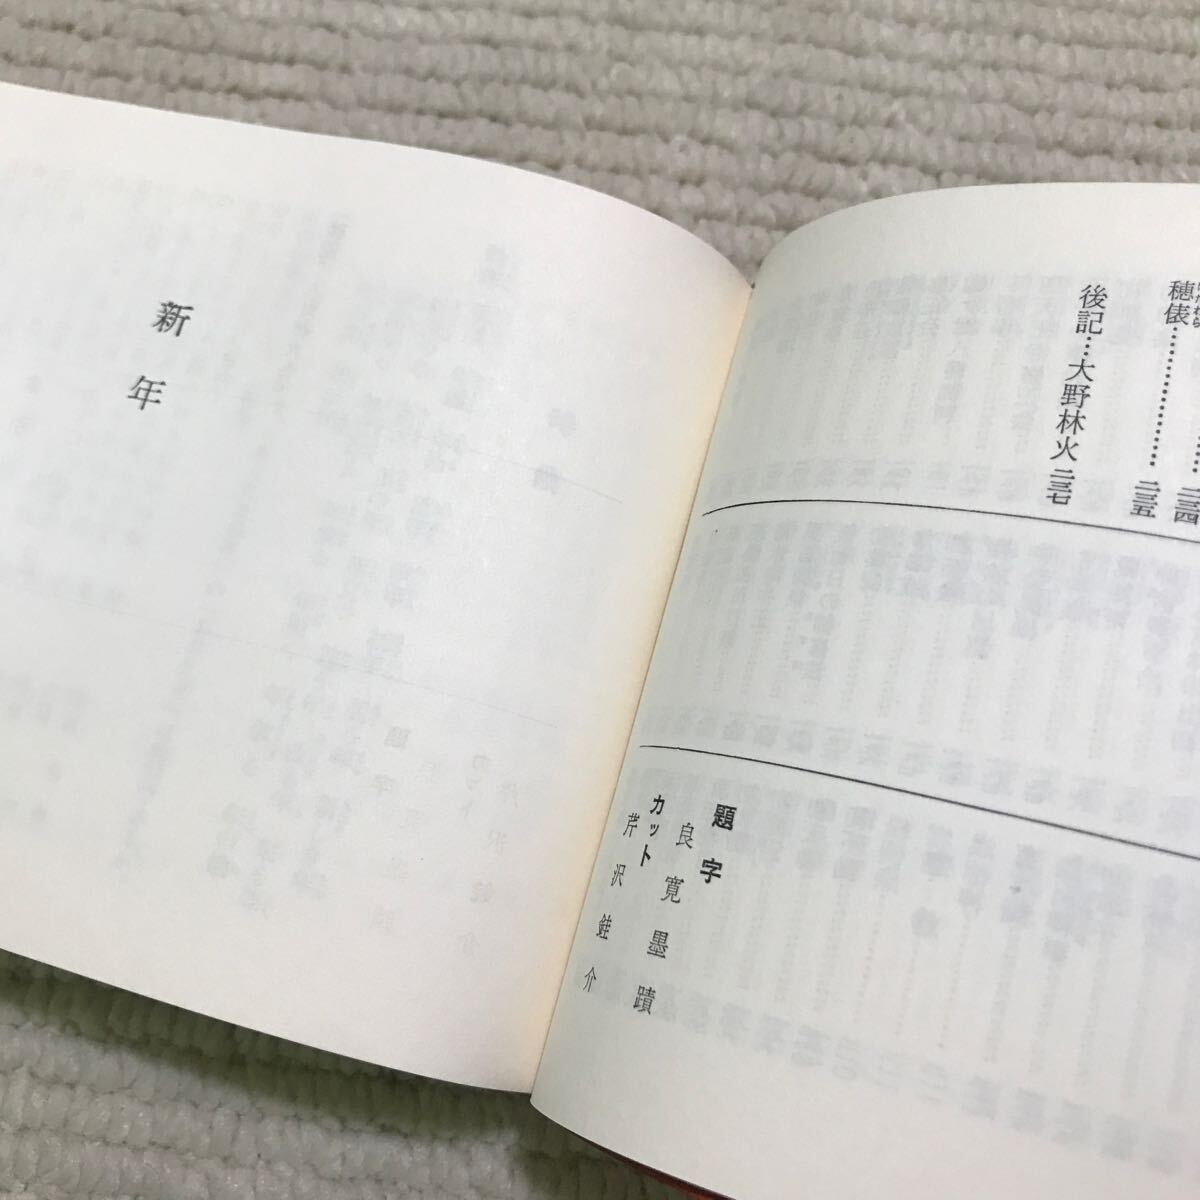 穂俵……………二三五
後記…大野林火 二三七
題字
良寛墨蹟
カット
芹沢銈介
新年